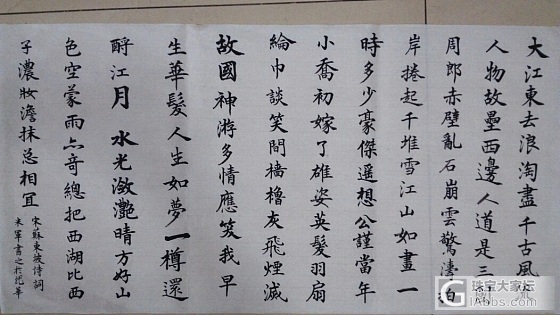 大江東去浪淘盡千古風流
人物故壘西邊人道是三國
周郎赤壁亂石崩雲驚濤拍
岸捲起千堆雪江山如畫一
時多少豪傑遥想公謹當年
小喬初嫁了雄姿英髮羽扇
綸巾談笑間檣櫓灰飛煙滅
故國神游多情應笑我早
生華髮人生如夢一樽還
酹江月 水光潋灩晴方好山
色空蒙雨亦奇總把西湖比西
子濃妝澹抹总相宜
宋蘇東坡诗詞
軍書之於
珠宝大家坛